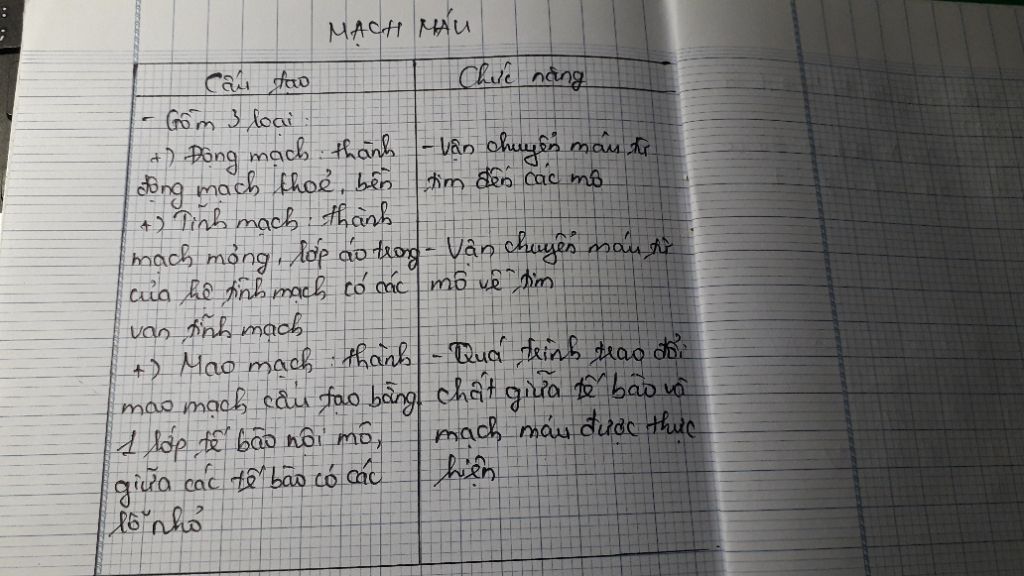 MẠCH MÁU
Cấu tạo
Chức năng
- Gồm 3 loại:
+) Động mạch: thành
động mạch thoẻ, bền
+) Tĩnh mạch: thành
mạch mỏng, lớp áo trong
của hệ tĩnh mạch có các
van tĩnh mạch
+) Mao mạch: thành
mao mạch cấu tạo bằng
1 lớp tế bào nội mô,
giữa các tế bào có các
lỗ nhỏ
- Vận chuyển máu từ
tim đến các mô
- Vận chuyển máu từ
mô về tim
- Quá trình trao đổi
chất giữa tế bào và
mạch máu được thực
hiện